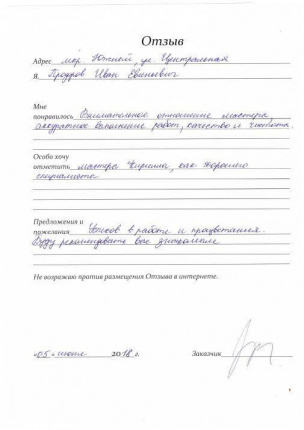 Отзыв
Адрес мкр. Южный, ул. Центральная
Я, Иван Евгеньевич
Мне
понравилось Внимательное отношение мастера,
аккуратное выполнение работ, качество и чистота.
Особо хочу
отметить мастера Кирилла, как хорошего
специалиста
Предложения и
пожелания Успехов в работе и процветания.
Буду рекомендовать вас
Не возражаю против размещения Отзыва в интернете.
«05» июля 2018 г. Заказчик